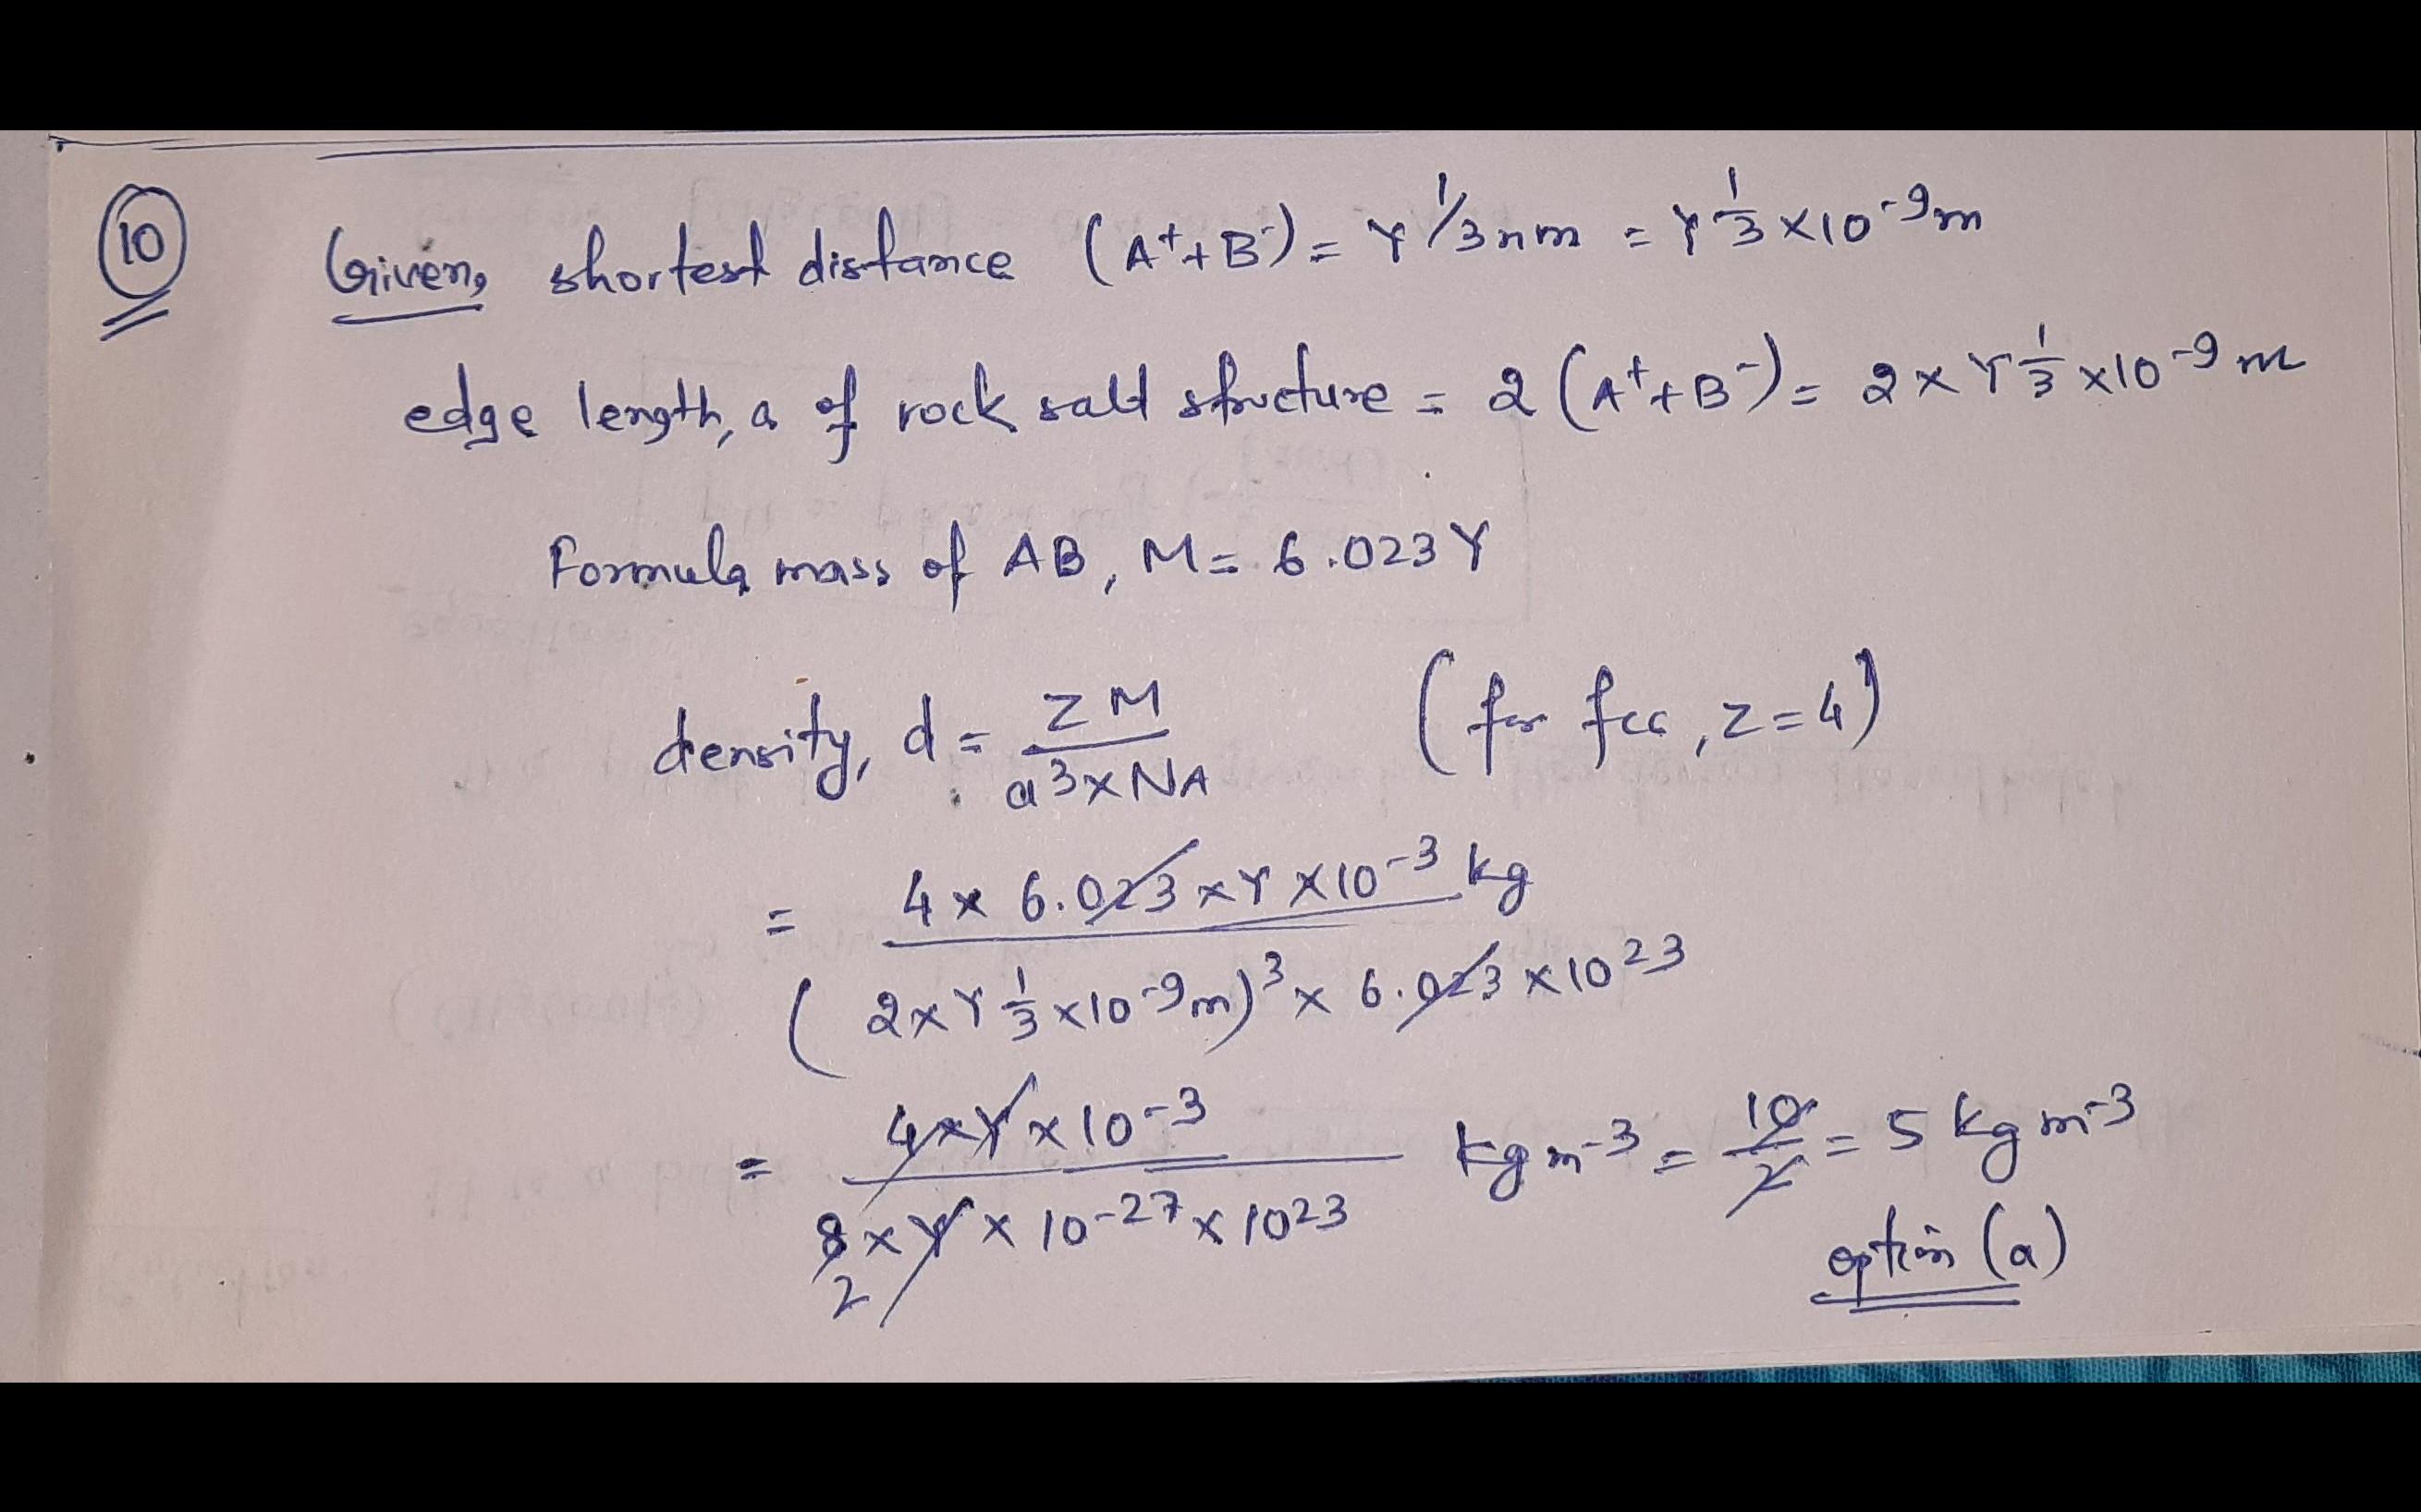 10
Given, shortest distance (A⁺+B⁻) = Y^1/3 nm = Y^1/3 × 10⁻⁹ m
edge length, a of rock salt structure = 2 (A⁺+B⁻) = 2 × Y^1/3 × 10⁻⁹ m
Formula mass of AB, M = 6.023 Y
density, d = ZM / a³ × NA (for fcc, z=4)
= 4 × 6.023 × Y × 10⁻³ kg
(2 × Y^1/3 × 10⁻⁹ m)³ × 6.023 × 10²³
= 4 × Y × 10⁻³ kg m⁻³ = 10/2 = 5 kg m⁻³
8 × Y × 10⁻²⁷ × 10²³
2
option (a)